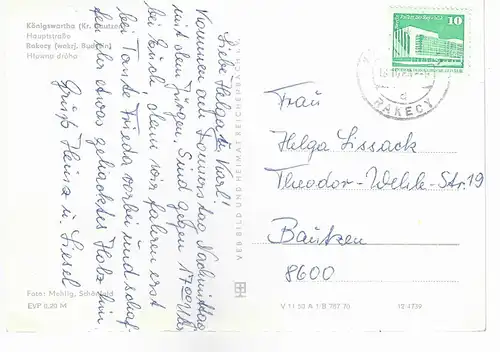 Königswartha (Kr. Bautzen)
Hauptstraße
Rakecy (wokrj. Budyšin)
Hłowna dróha
Liebe Helga u. Karl!
Kommen am Donnerstag Nachmittag
mit dem Jürgen. Sind gegen 17 00 Uhr
bei Euch, denn wir fahren erst
bei Tante Frieda vorbei und schaf-
fen ihr etwas gehacktes Holz hin.
Gruß Heinz u. Liesel
Foto: Mehlig, Schönfeld
EVP 0,20 M
VEB BILD UND HEIMAT REICHENBACH
10
RAKECY
Frau
Helga Lissack
Theodor-Wehle-Str. 19
Bautzen
8600
V 11 50 A 1/B 767 70
12 4739